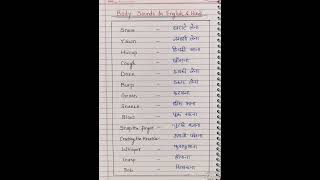 Body Sounds In English & Hindi
Snore - खर्राटे लेना
Yawn - जम्हाई लेना
Hiccup - हिचकी आना
Cough - खाँसना
Doze - झपकी लेना
Burp - डकार लेना
Groan - कराहना
Sneeze - छींक आना
Blow - फूंक मारना
Snap the finger - चुटकी बजाना
Cracking the Knuckle - उंगली चटकाना
Whisper - फुसफुसाना
Gasp - हाँफना
Sob - सिसकना